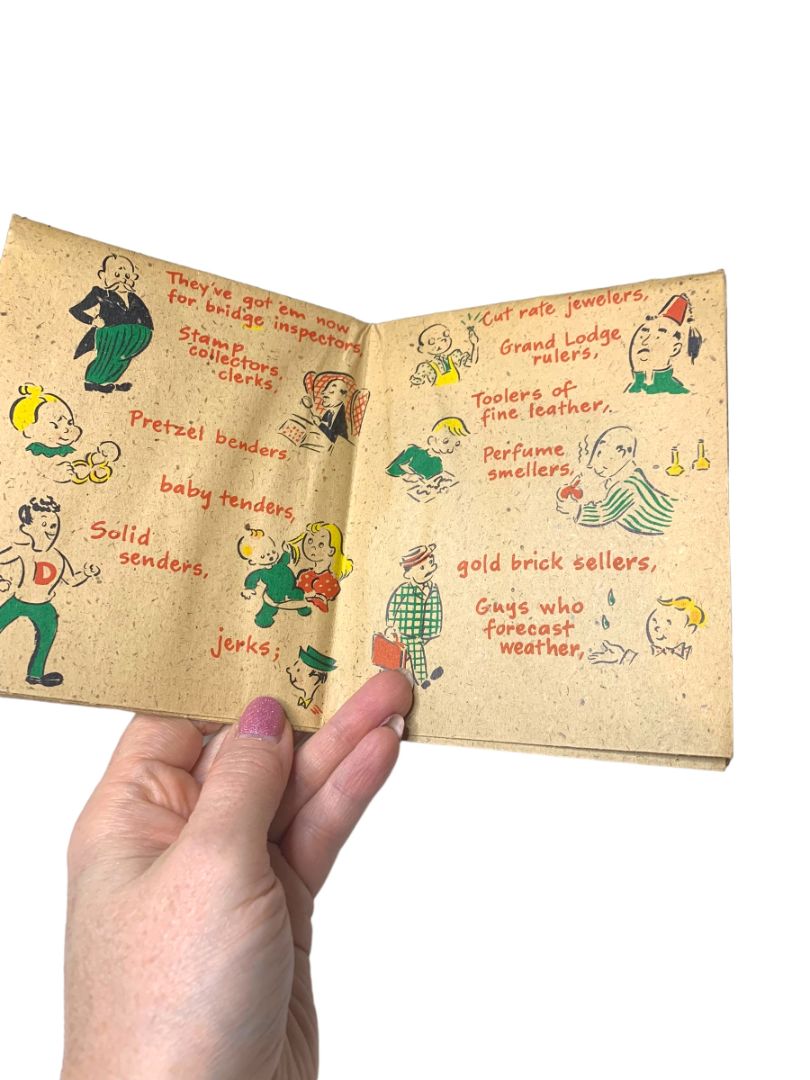 They've got 'em now
for bridge inspectors,
Stamp
collectors,
clerks,
Pretzel benders,
baby tenders,
Solid
senders,
D
jerks;
Cut rate jewelers,
Grand Lodge
rulers,
Toolers of
fine leather,
Perfume
smellers,
gold brick sellers,
Guys who
forecast
weather,